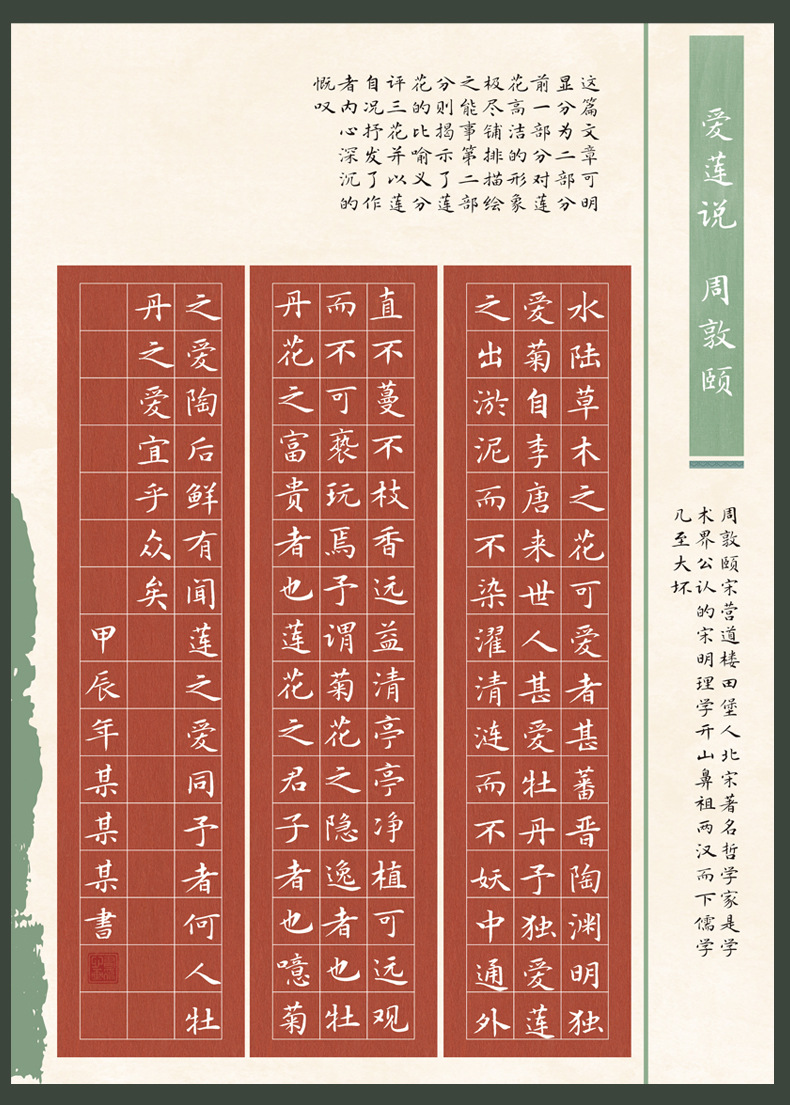 爱莲说 周敦颐
周敦颐宋营道楼田堡人北宋著名哲学家是学
术界公认的宋明理学开山鼻祖两汉而下儒学
几至大坏
这篇文章可明
显分为二部分
前一部分对莲
花高洁的形象
极尽铺排描绘
之能事第二部
分则揭示了莲
花的比喻义分
评三花并以莲
自况抒发了作
者内心深沉的
慨叹
水陆草木之花可爱者甚蕃晋陶渊明独
爱菊自李唐来世人甚爱牡丹予独爱莲
之出淤泥而不染濯清涟而不妖中通外
直不蔓不枝香远益清亭亭净植可远观
而不可亵玩焉予谓菊花之隐逸者也牡
丹花之富贵者也莲花之君子者也噫菊
之爱陶后鲜有闻莲之爱同予者何人牡
丹之爱宜乎众矣
甲辰年某某某書